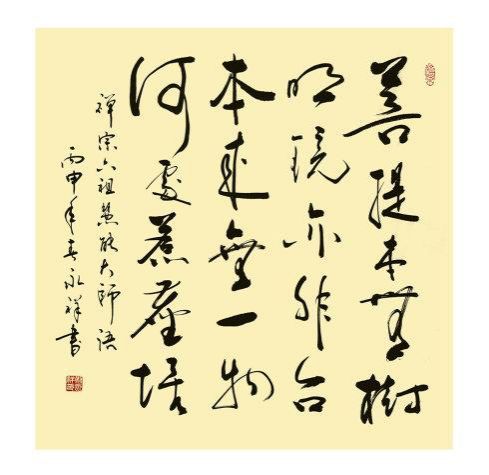 菩提本無樹
明鏡亦非台
本來無一物
何處惹塵埃
禪宗六祖慧能大師語
丙申年春永祥書